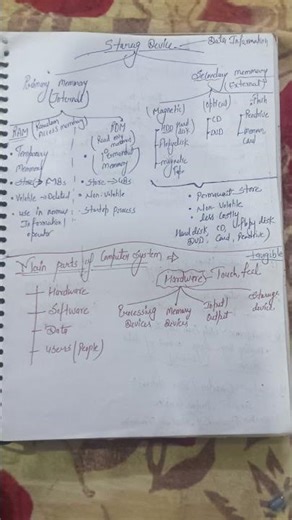 Storag Device → Data Information
Primary memory
(Internal)
Secondary memory
(External)
RAM (Random access memory)
• Temporary memory
• Store → MBs
• Volatile → Deleted
• use in normal
Information /
ROM
(Read only memory)
• Permanent memory
• Store → GBs
• Non-Volatile
• Startup process
(Magnetic)
HDD Hard disk
magnetic Tape
(optical)
CD
DVD
Flash
Pendrive
Memory Card
• Permanent store
• Non Volatile
• Less Costly
Hard desk, CD,
(DVD, Card, Pendrive)
Main parts of Computer System
Hardware
Software
Data
Users (People)
tangible
Hardware → Touch, feel
Processing Devices
Memory Devices
Input /
Output
Storage device